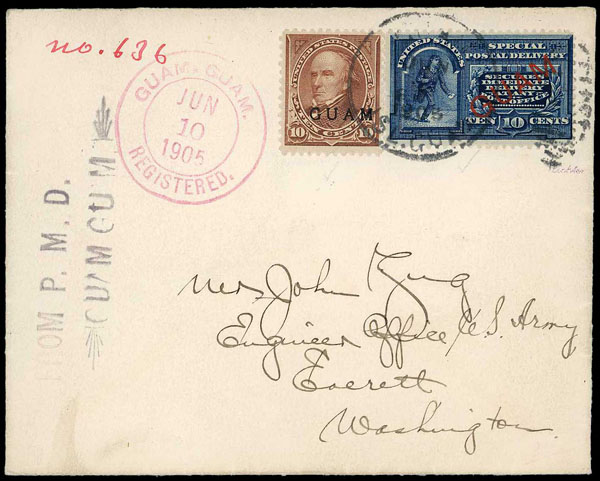 no. 636
GUAM, GUAM.
JUN
10
1905
REGISTERED.
UNITED STATES
10
TEN CENTS
GUAM
UNITED STATES
SPECIAL
POSTAL DELIVERY
SECURES
IMMEDIATE
DELIVERY
AT ANY
OFFICE
GUAM
TEN 10 CENTS
OM P. M. D.
GUAM GUM
Mr. John
Engineer Office U.S. Army
Everett
Washington.